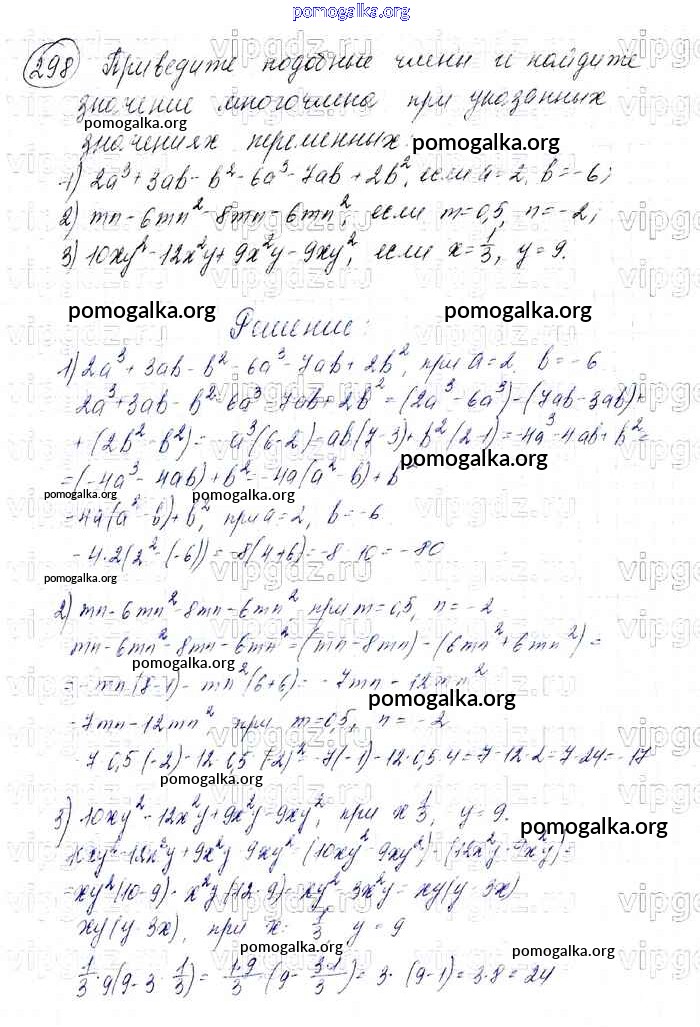 pomogalka.org
298 Приведите подобные члены и найдите
значение многочлена при указанных
pomogalka.org
значениях переменных: pomogalka.org
1) 2a³+3ab-b²-6a³-7ab+2b², если a=2, b=-6;
2) mn-6mn²-8mn-6mn², если m=0,5, n=-2;
3) 10xy²-12x²y+9x²y-9xy², если x=1/3, y=9.
pomogalka.org pomogalka.org
Решение:
1) 2a³+3ab-b²-6a³-7ab+2b², при a=2, b=-6
2a³+3ab-b²-6a³-7ab+2b²=(2a³-6a³)-(7ab-3ab)+
+(2b²-b²)=-a³(6-2)=ab(7-3)+b²(2-1)=-4a³-4ab+b²=
pomogalka.org
=(-4a³-4ab)+b²=-4a(a²-b)+b²
pomogalka.org pomogalka.org
=4a(a²-b)+b², при a=2, b=-6
-4·2(2²-(-6))=-8(4+6)=-8·10=-80
pomogalka.org
2) mn-6mn²-8mn-6mn², при m=0,5, n=-2
mn-6mn²-8mn-6mn²=(mn-8mn)-(6mn²+6mn²)=
pomogalka.org
=-mn(8-1)-mn²(6+6)=-7mn-12mn²
pomogalka.org
-7mn-12mn², при m=0,5, n=-2
-7·0,5·(-2)-12·0,5·(-2)²=-7(-1)-12·0,5·4=7-12·2=7-24=-17
pomogalka.org
3) 10xy²-12x²y+9x²y-9xy², при x=1/3, y=9.
pomogalka.org
10xy²-12x²y+9x²y-9xy²=(10xy²-9xy²)-(12x²y-9x²y)=
=xy²(10-9)-x²y(12-9)=xy²-3x²y=xy(y-3x)
xy(y-3x), при x=1/3, y=9
pomogalka.org pomogalka.org
1/3·9(9-3·1/3)=1·9/3·(9-3·1/3)=3·(9-1)=3·8=24